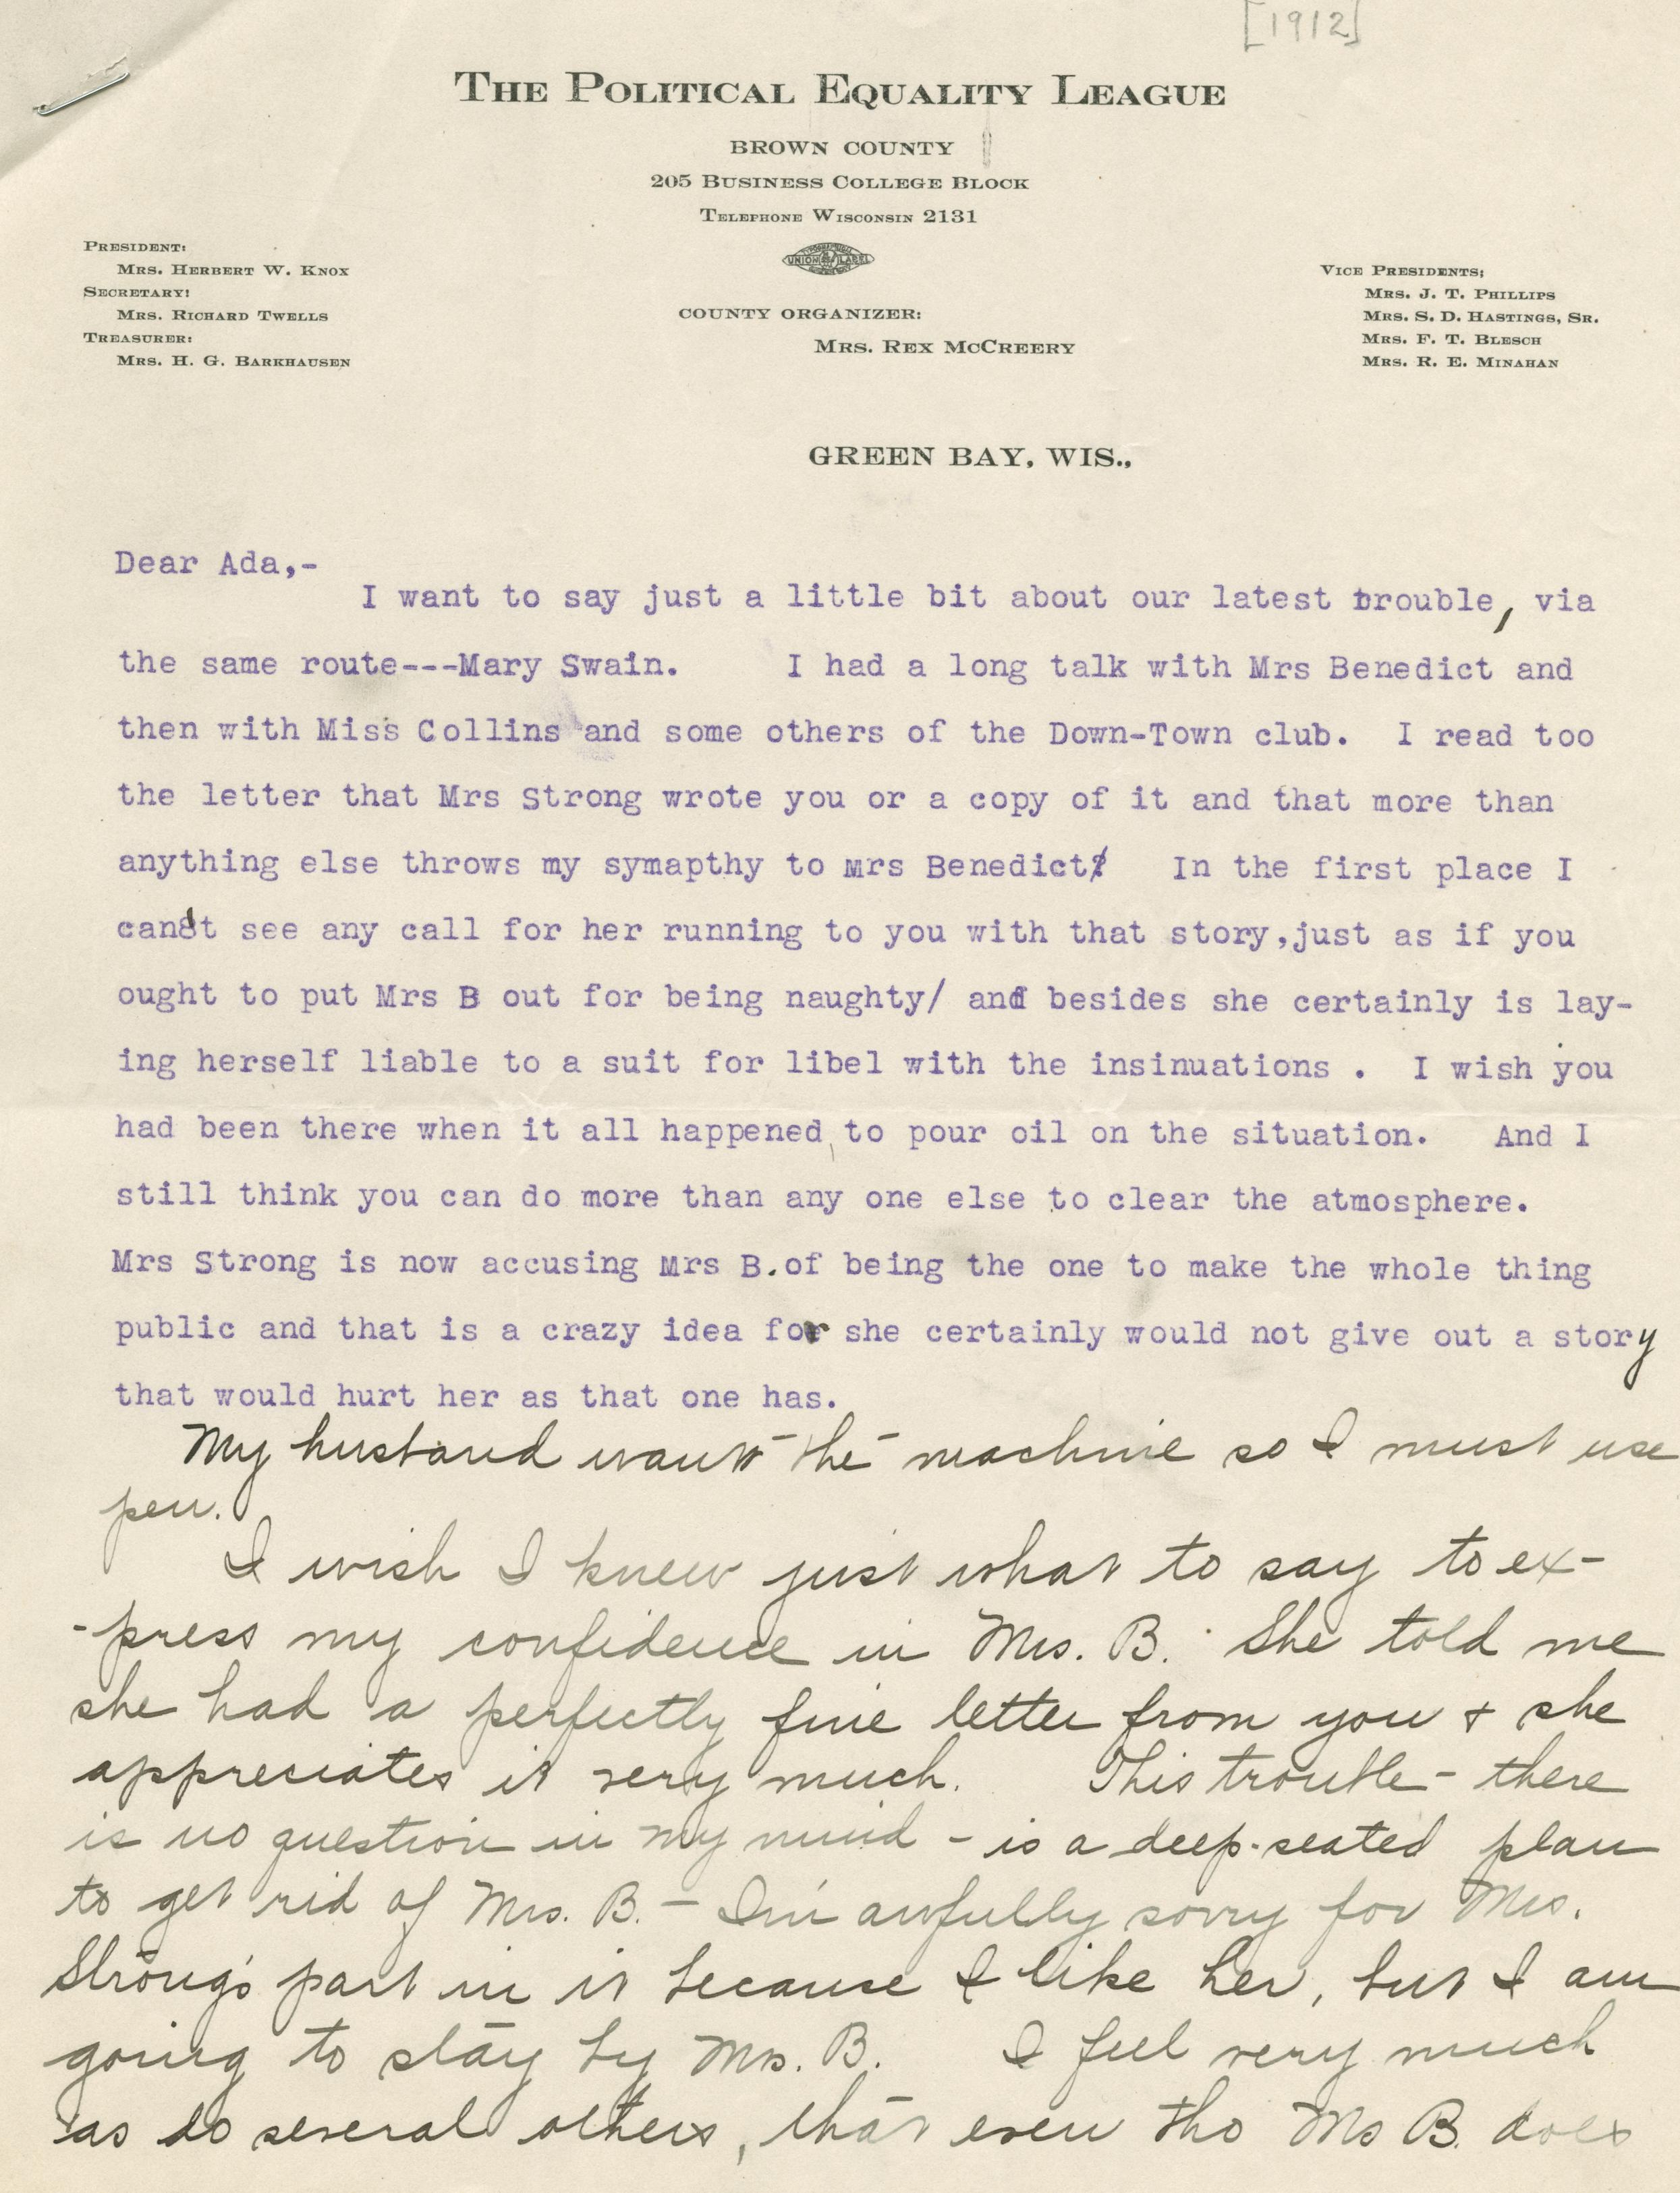 [1912]
THE POLITICAL EQUALITY LEAGUE
BROWN COUNTY
205 BUSINESS COLLEGE BLOCK
TELEPHONE WISCONSIN 2131
UNION LABEL
PRESIDENT:
MRS. HERBERT W. KNOX
SECRETARY:
MRS. RICHARD TWELLS
TREASURER:
MRS. H. G. BARKHAUSEN
COUNTY ORGANIZER:
MRS. REX MCCREERY
VICE PRESIDENTS:
MRS. J. T. PHILLIPS
MRS. S. D. HASTINGS, SR.
MRS. F. T. BLESCH
MRS. R. E. MINAHAN
GREEN BAY, WIS.,
Dear Ada,-
I want to say just a little bit about our latest trouble, via
the same route---Mary Swain. I had a long talk with Mrs Benedict and
then with Miss Collins and some others of the Down-Town club. I read too
the letter that Mrs Strong wrote you or a copy of it and that more than
anything else throws my symapthy to Mrs Benedict! In the first place I
can't see any call for her running to you with that story,just as if you
ought to put Mrs B out for being naughty/ and besides she certainly is lay-
ing herself liable to a suit for libel with the insinuations . I wish you
had been there when it all happened to pour oil on the situation. And I
still think you can do more than any one else to clear the atmosphere.
Mrs Strong is now accusing Mrs B.of being the one to make the whole thing
public and that is a crazy idea for she certainly would not give out a story
that would hurt her as that one has.
My husband wants the machine so I must use
pen.
I wish I knew just what to say to ex-
-press my confidence in Mrs. B. She told me
she had a perfectly fine letter from you & she
appreciates it very much. This trouble - there
is no question in my mind - is a deep-seated plan
to get rid of Mrs. B. - I'm awfully sorry for Mrs.
Strong's part in it because I like her, but I am
going to stay by Mrs. B. I feel very much
as do several others, that even tho Mrs B. does